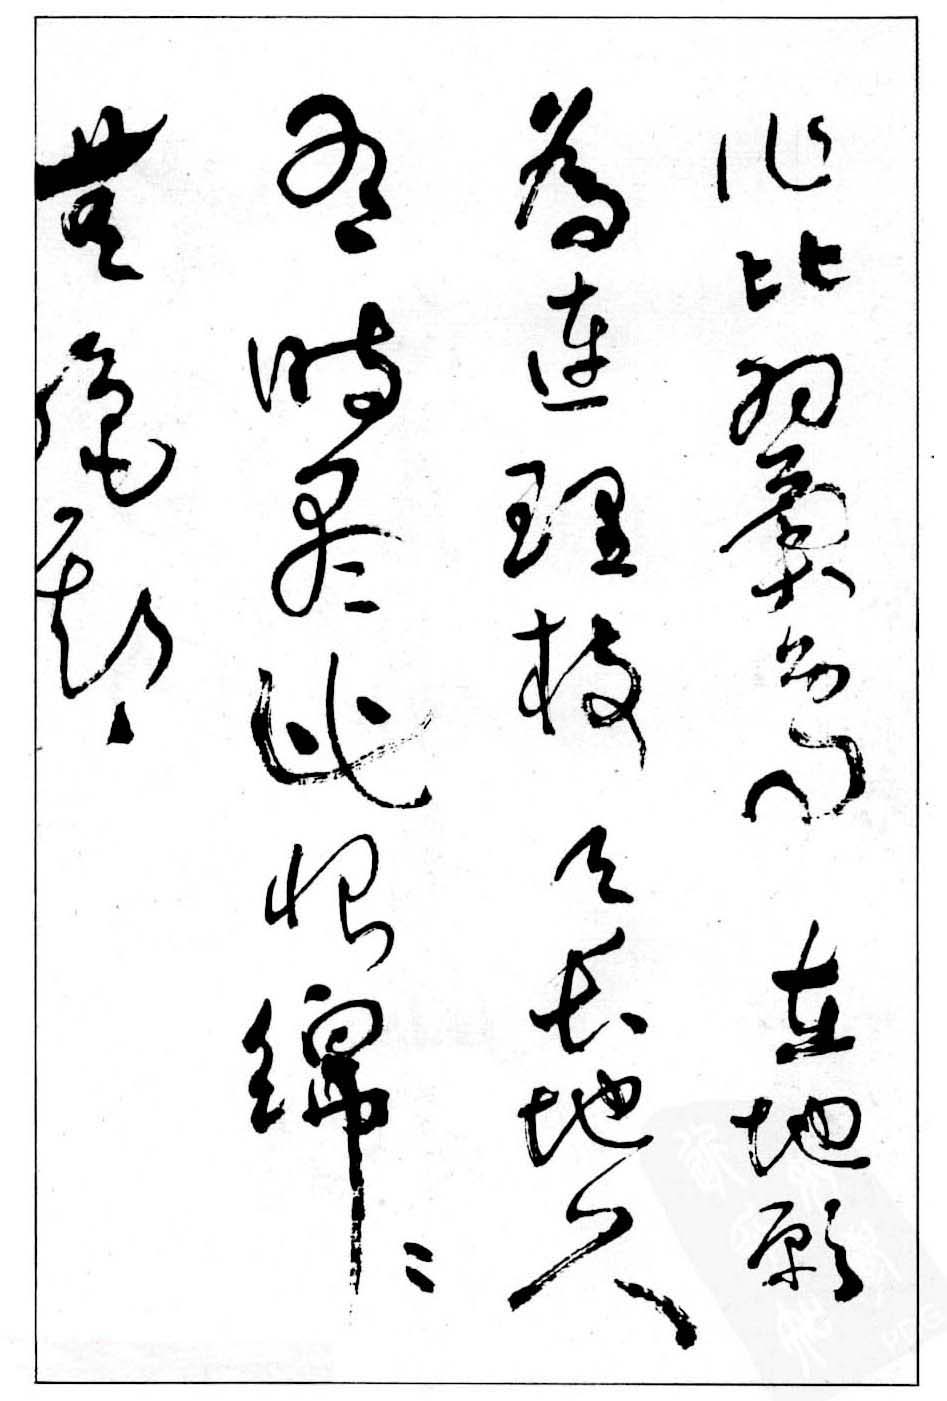 作比翼鳥在地願
為連理枝天長地久
有時盡此恨綿〻
無絕期